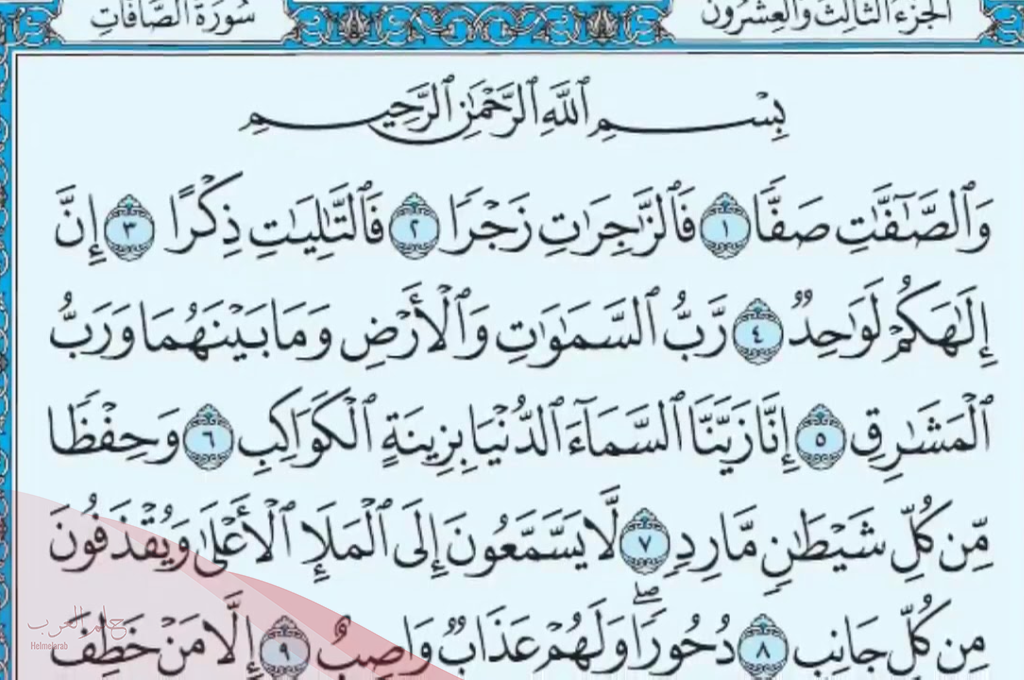 الجزء الثالث والعشرون
سورة الصافات
بِسْمِ ٱللَّهِ ٱلرَّحْمَٰنِ ٱلرَّحِيمِ
وَٱلصَّٰٓفَّٰتِ صَفًّا ١ فَٱلزَّٰجِرَٰتِ زَجْرًا ٢ فَٱلتَّٰلِيَٰتِ ذِكْرًا ٣ إِنَّ
إِلَٰهَكُمْ لَوَٰحِدٌ ٤ رَّبُّ ٱلسَّمَٰوَٰتِ وَٱلْأَرْضِ وَمَا بَيْنَهُمَا وَرَبُّ
ٱلْمَشَٰرِقِ ٥ إِنَّا زَيَّنَّا ٱلسَّمَآءَ ٱلدُّنْيَا بِزِينَةٍ ٱلْكَوَاكِبِ ٦ وَحِفْظًا
مِّن كُلِّ شَيْطَٰنٍ مَّارِدٍ ٧ لَّا يَسَّمَّعُونَ إِلَى ٱلْمَلَإِ ٱلْأَعْلَىٰ وَيُقْذَفُونَ
مِن كُلِّ جَانِبٍ ٨ دُحُورًا ۖ وَلَهُمْ عَذَابٌ وَاصِبٌ ٩ إِلَّا مَنْ خَطِفَ
حلم العرب
Helmelarab